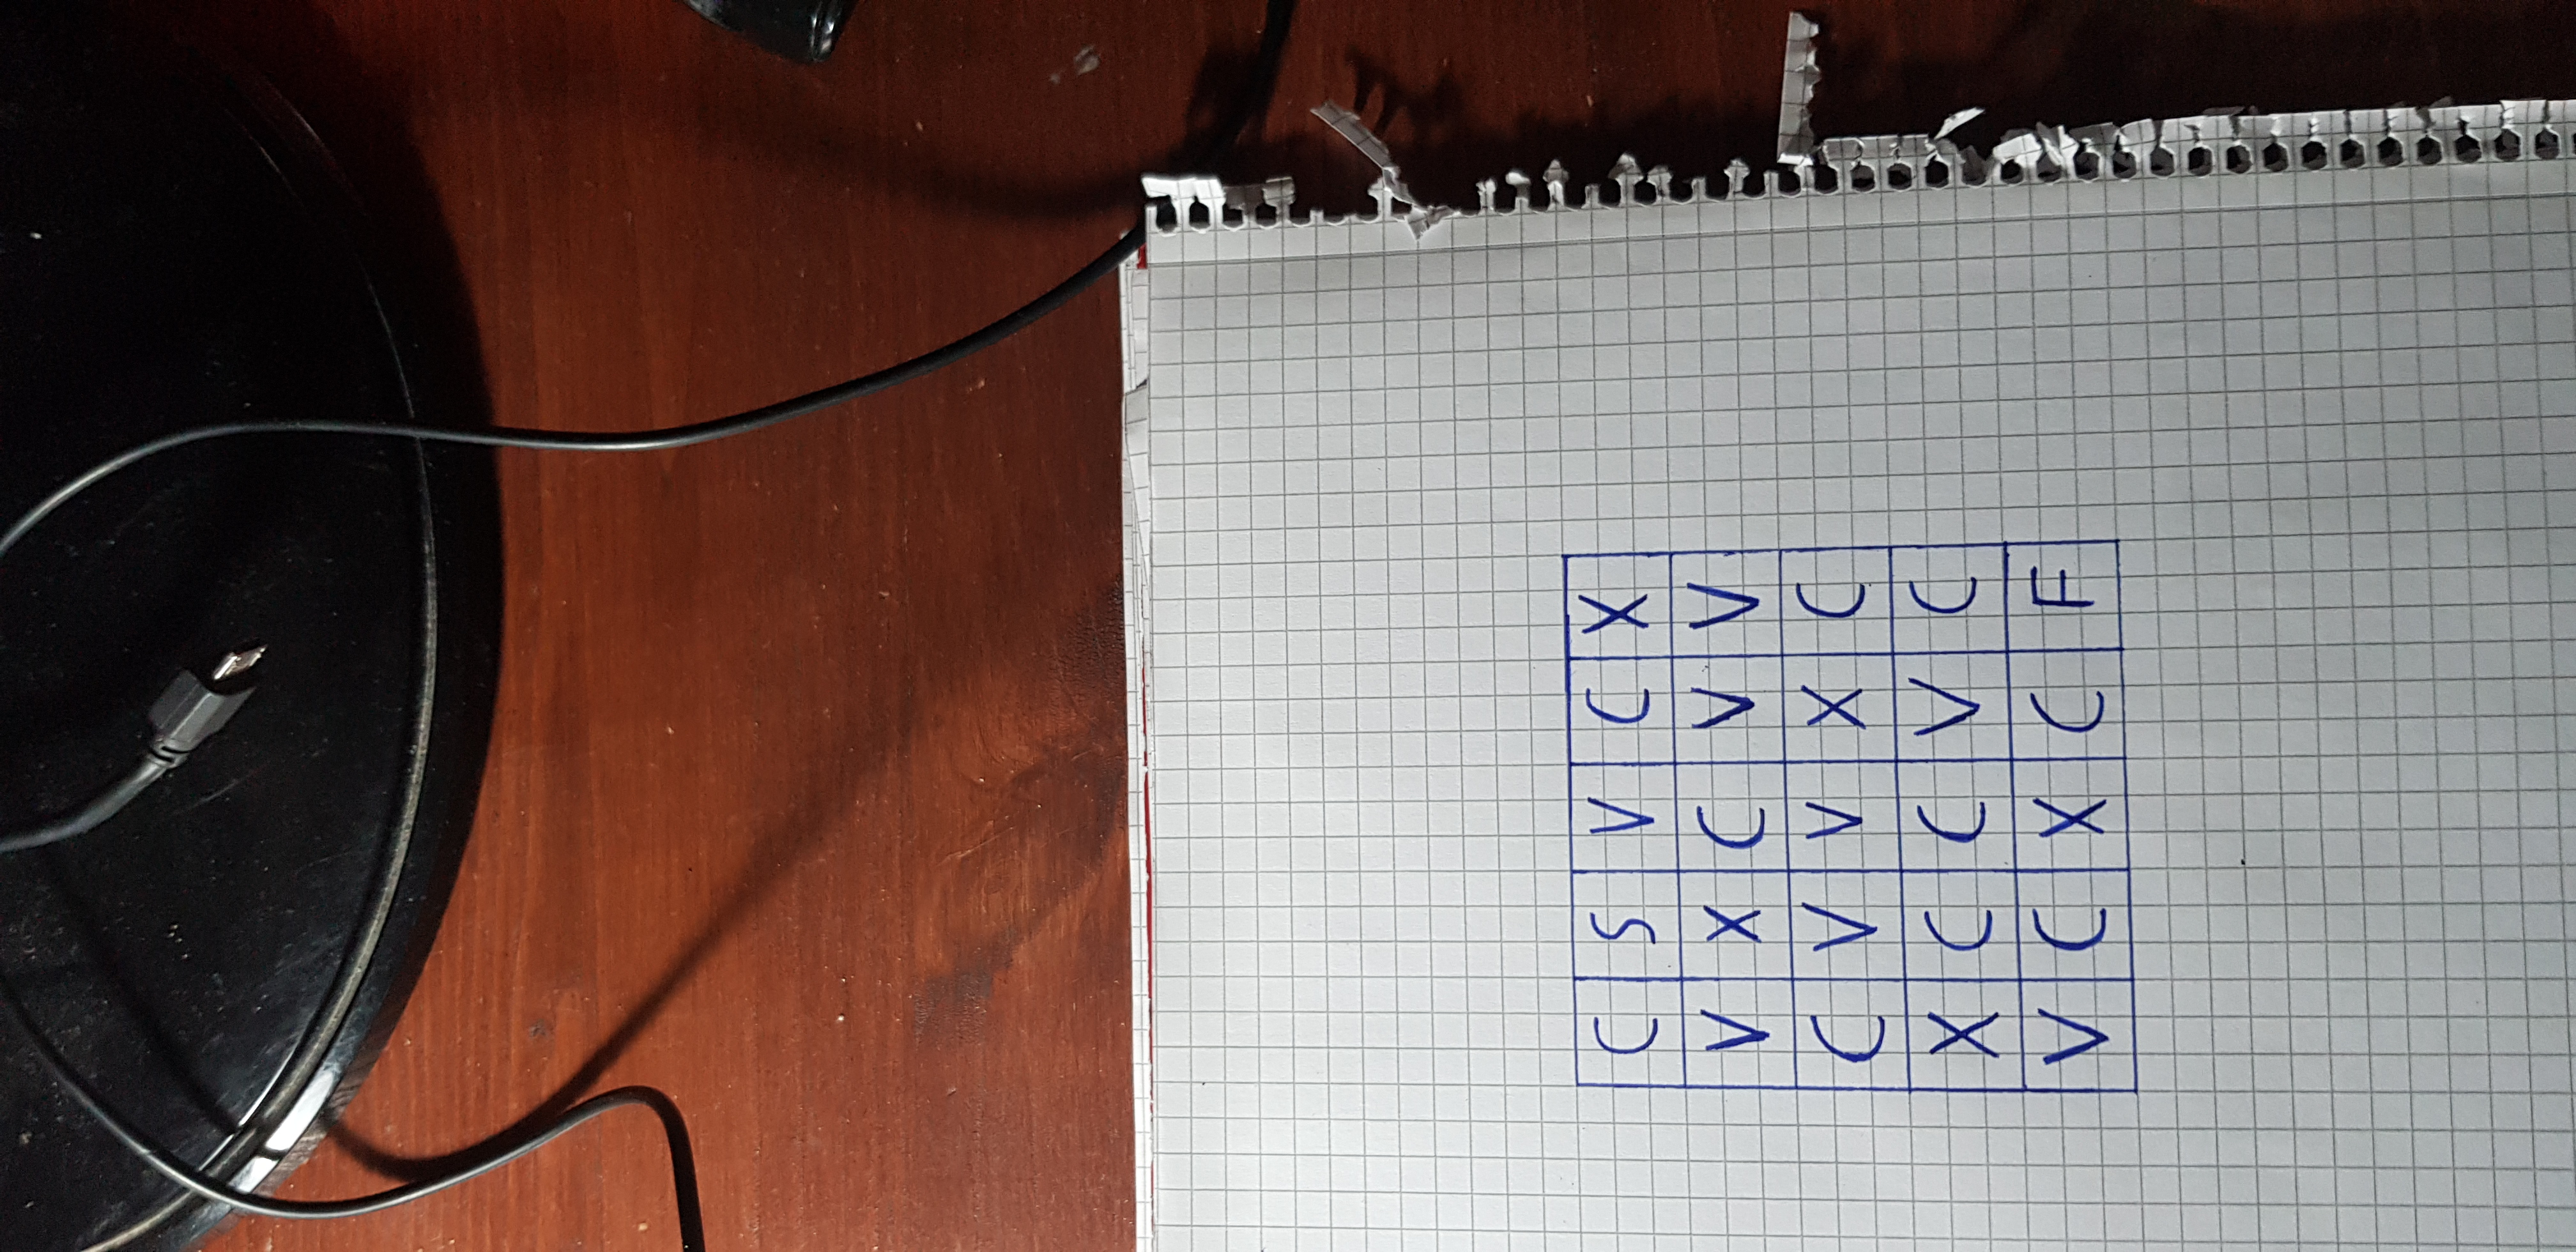 C S V C X
V X C V V
C V V X C
X C C V C
V C X C F